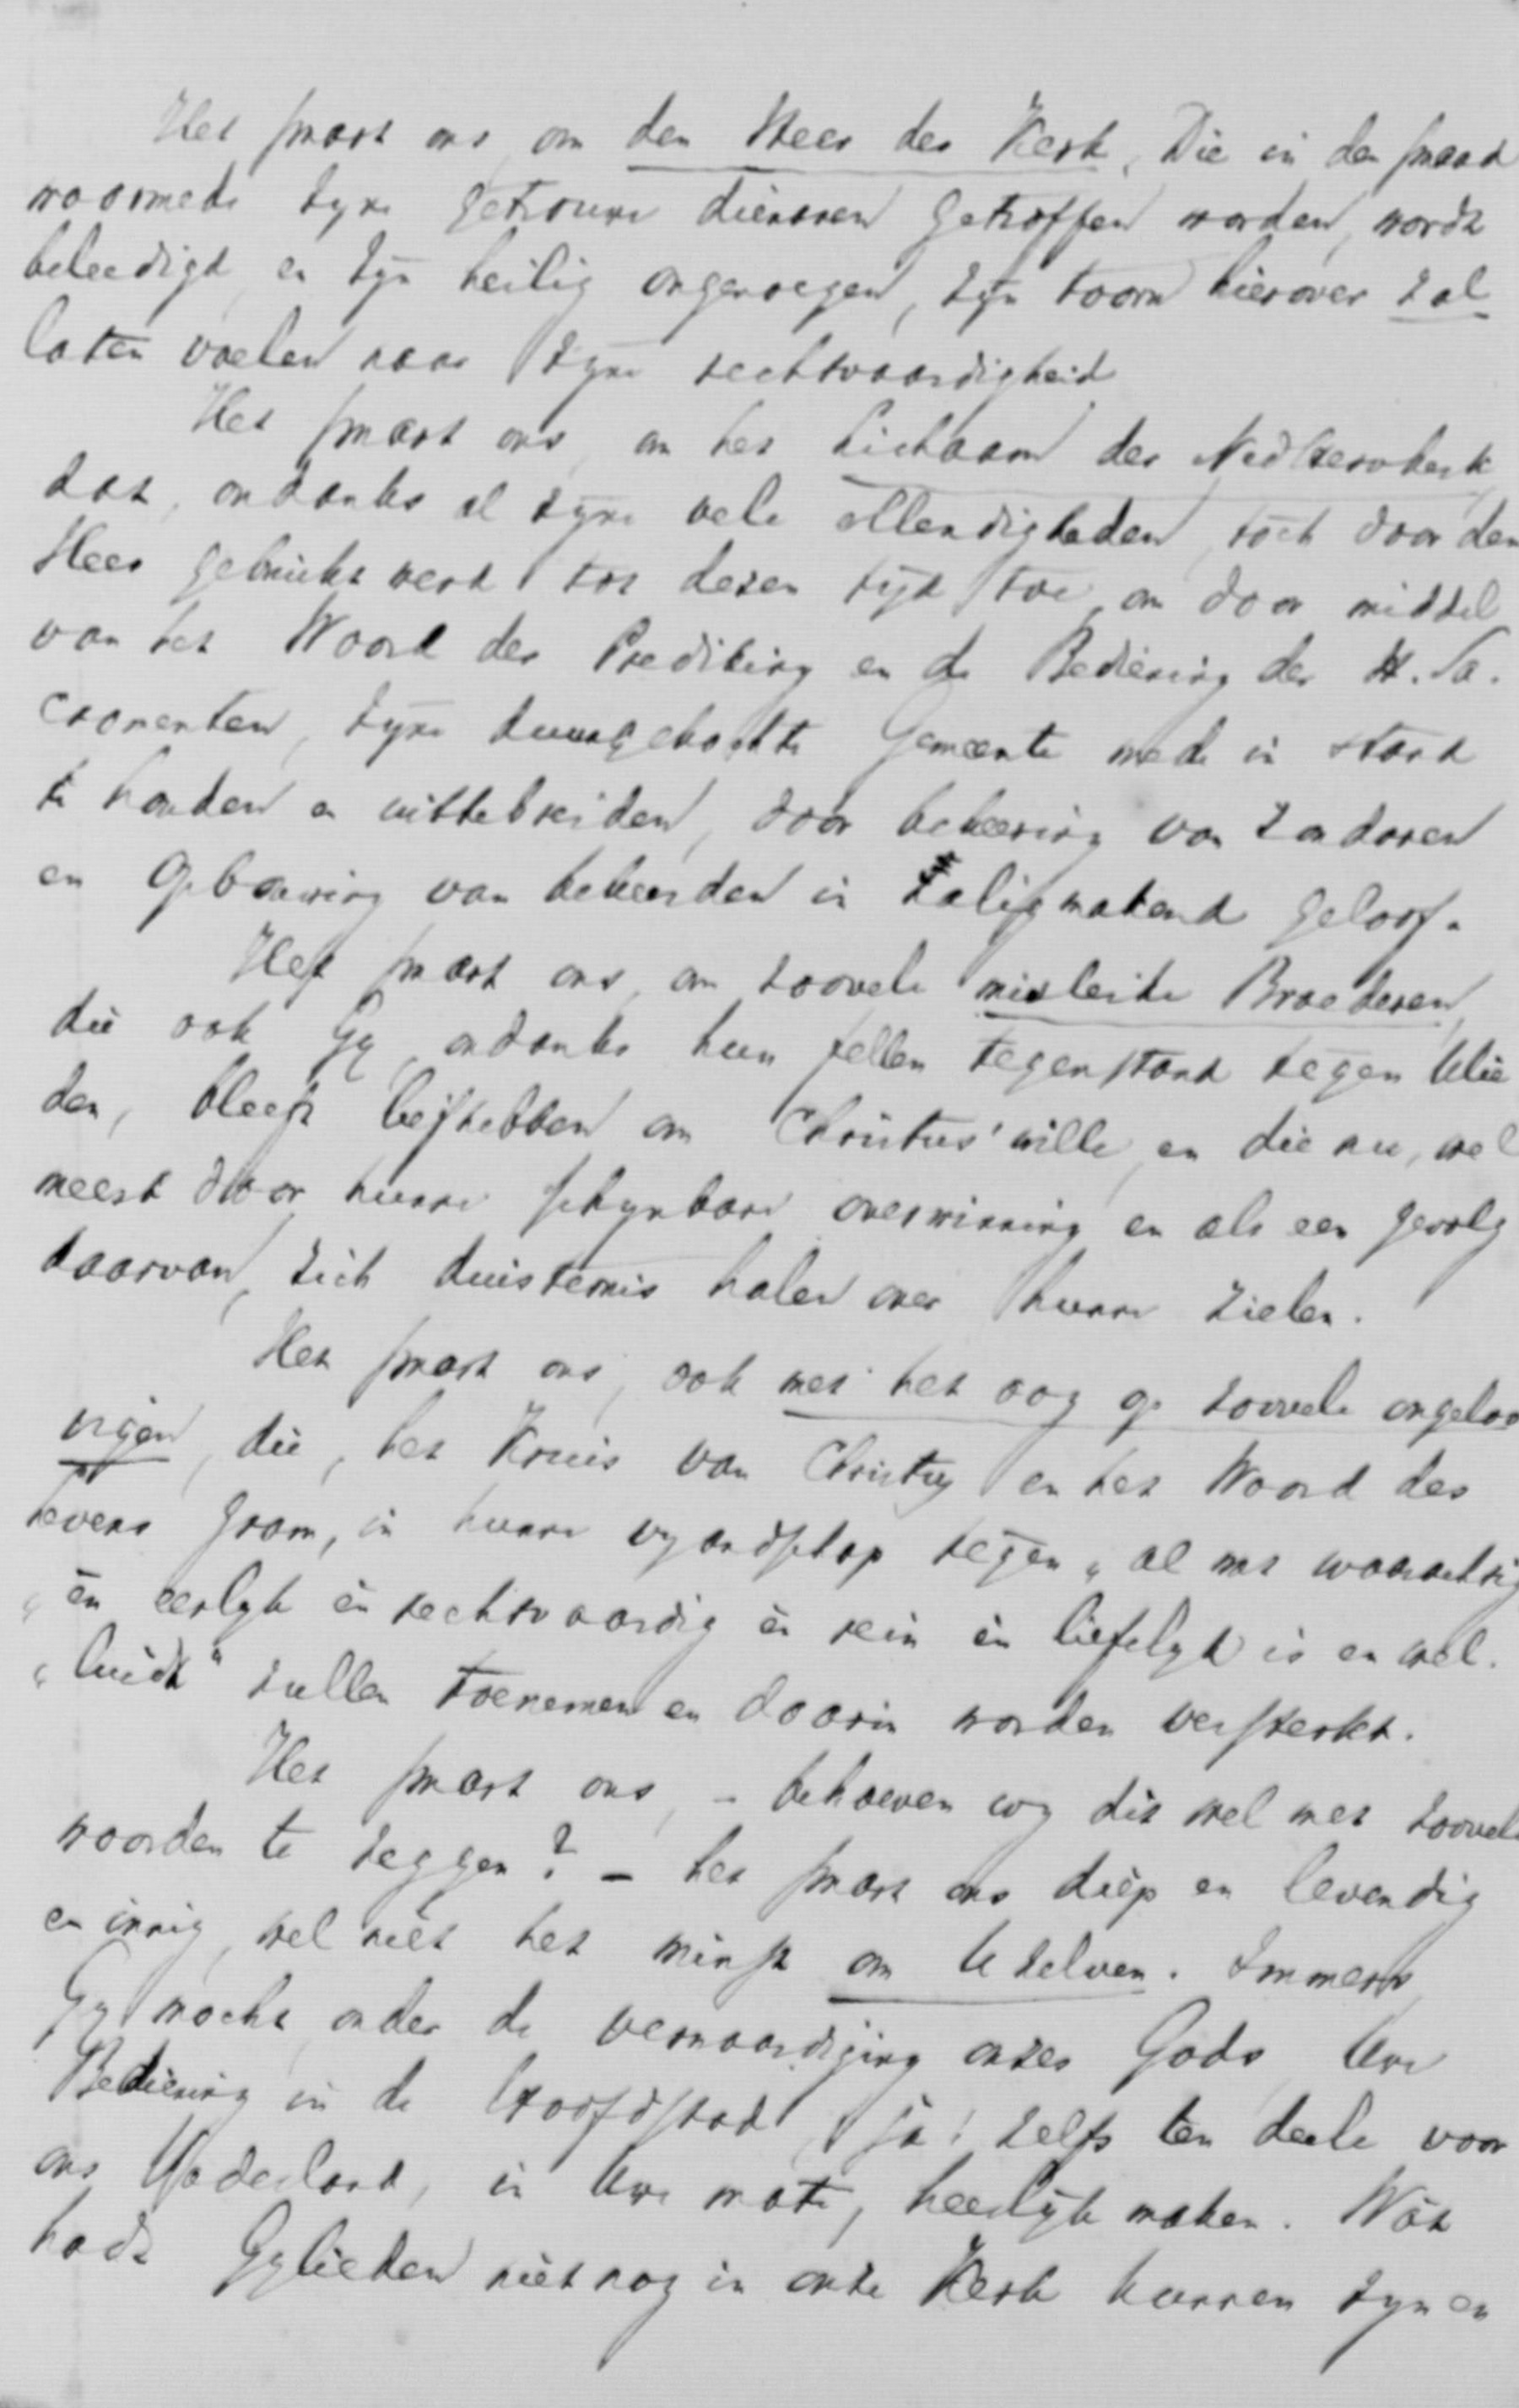 Het smart ons, om den Heer der Kerk, Die in den smaad
waarmede zyne getrouwe dienaren getroffen worden, wordt
beleedigd, en Zyn heilig ongenoegen, Zyn toorn hierover zal
laten voelen naar Zyne rechtvaardigheid
Het smart ons, om het Lichaam der Ned Hervkerk
dat, ondanks al zyne vele ellendigheden, toch door den
Heer gebruikt werd tot dezen tyd toe, om door middel
van het Woord der Prediking en de Bediening der H. Sa.
cramenten, Zyne duurgekochte Gemeente mede in stand
te houden en uittebreiden, door bekeering van zondaren
en opbouwing van bekeerden in zaligmakend geloof.
Het smart ons, om zoovele misleide Broederen,
die ook Gy, ondanks hun fellen tegenstand tegen Ulie
den, bleeft liefhebben om Christus' wille, en die nu, wel
meest door hunne schynbare overwinning en als een gevolg
daarvan, zich duisternis halen over hunne zielen.
Het smart ons, ook met het oog op zoovele ongeloo
vigen, die, het Kruis van Christus en het Woord des
Levens gram, in hunne vyandschap tegen „al wat waarachtig
„èn eerlyk èn rechtvaardig èn rein èn liefelyk is en wel.
„luidt" zullen toenemen en daarin worden versterkt.
Het smart ons, – behoeven wy dit wel met zoovele
woorden te zeggen? – het smart ons diep en levendig
en innig, wel niet het minst om U zelven. Immers
Gy mocht, onder de verwaardiging onzes Gods, Uwe
Bediening in de Hoofdstad, ja! zelfs ten deele voor
ons Vaderland, in Uwe mate, heerlyk maken. Wàt
hadt Gylieden niet nog in onze Kerk kunnen zyn en